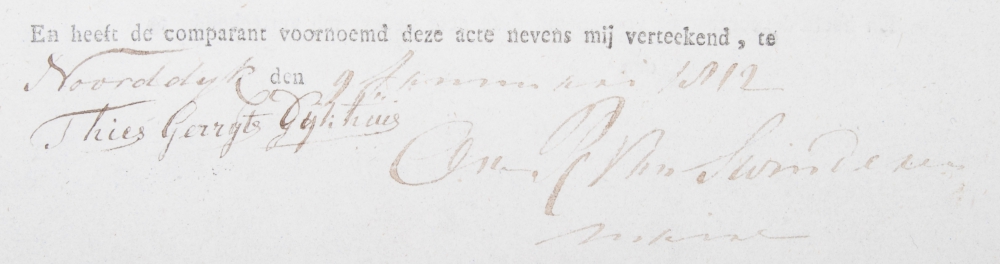 En heeft de comparant voornoemd deze acte nevens mij verteekend, te
Noorddyk den 9 Januari 1812
Thies Gerryts Dykhuis
Van Swinderen
maire